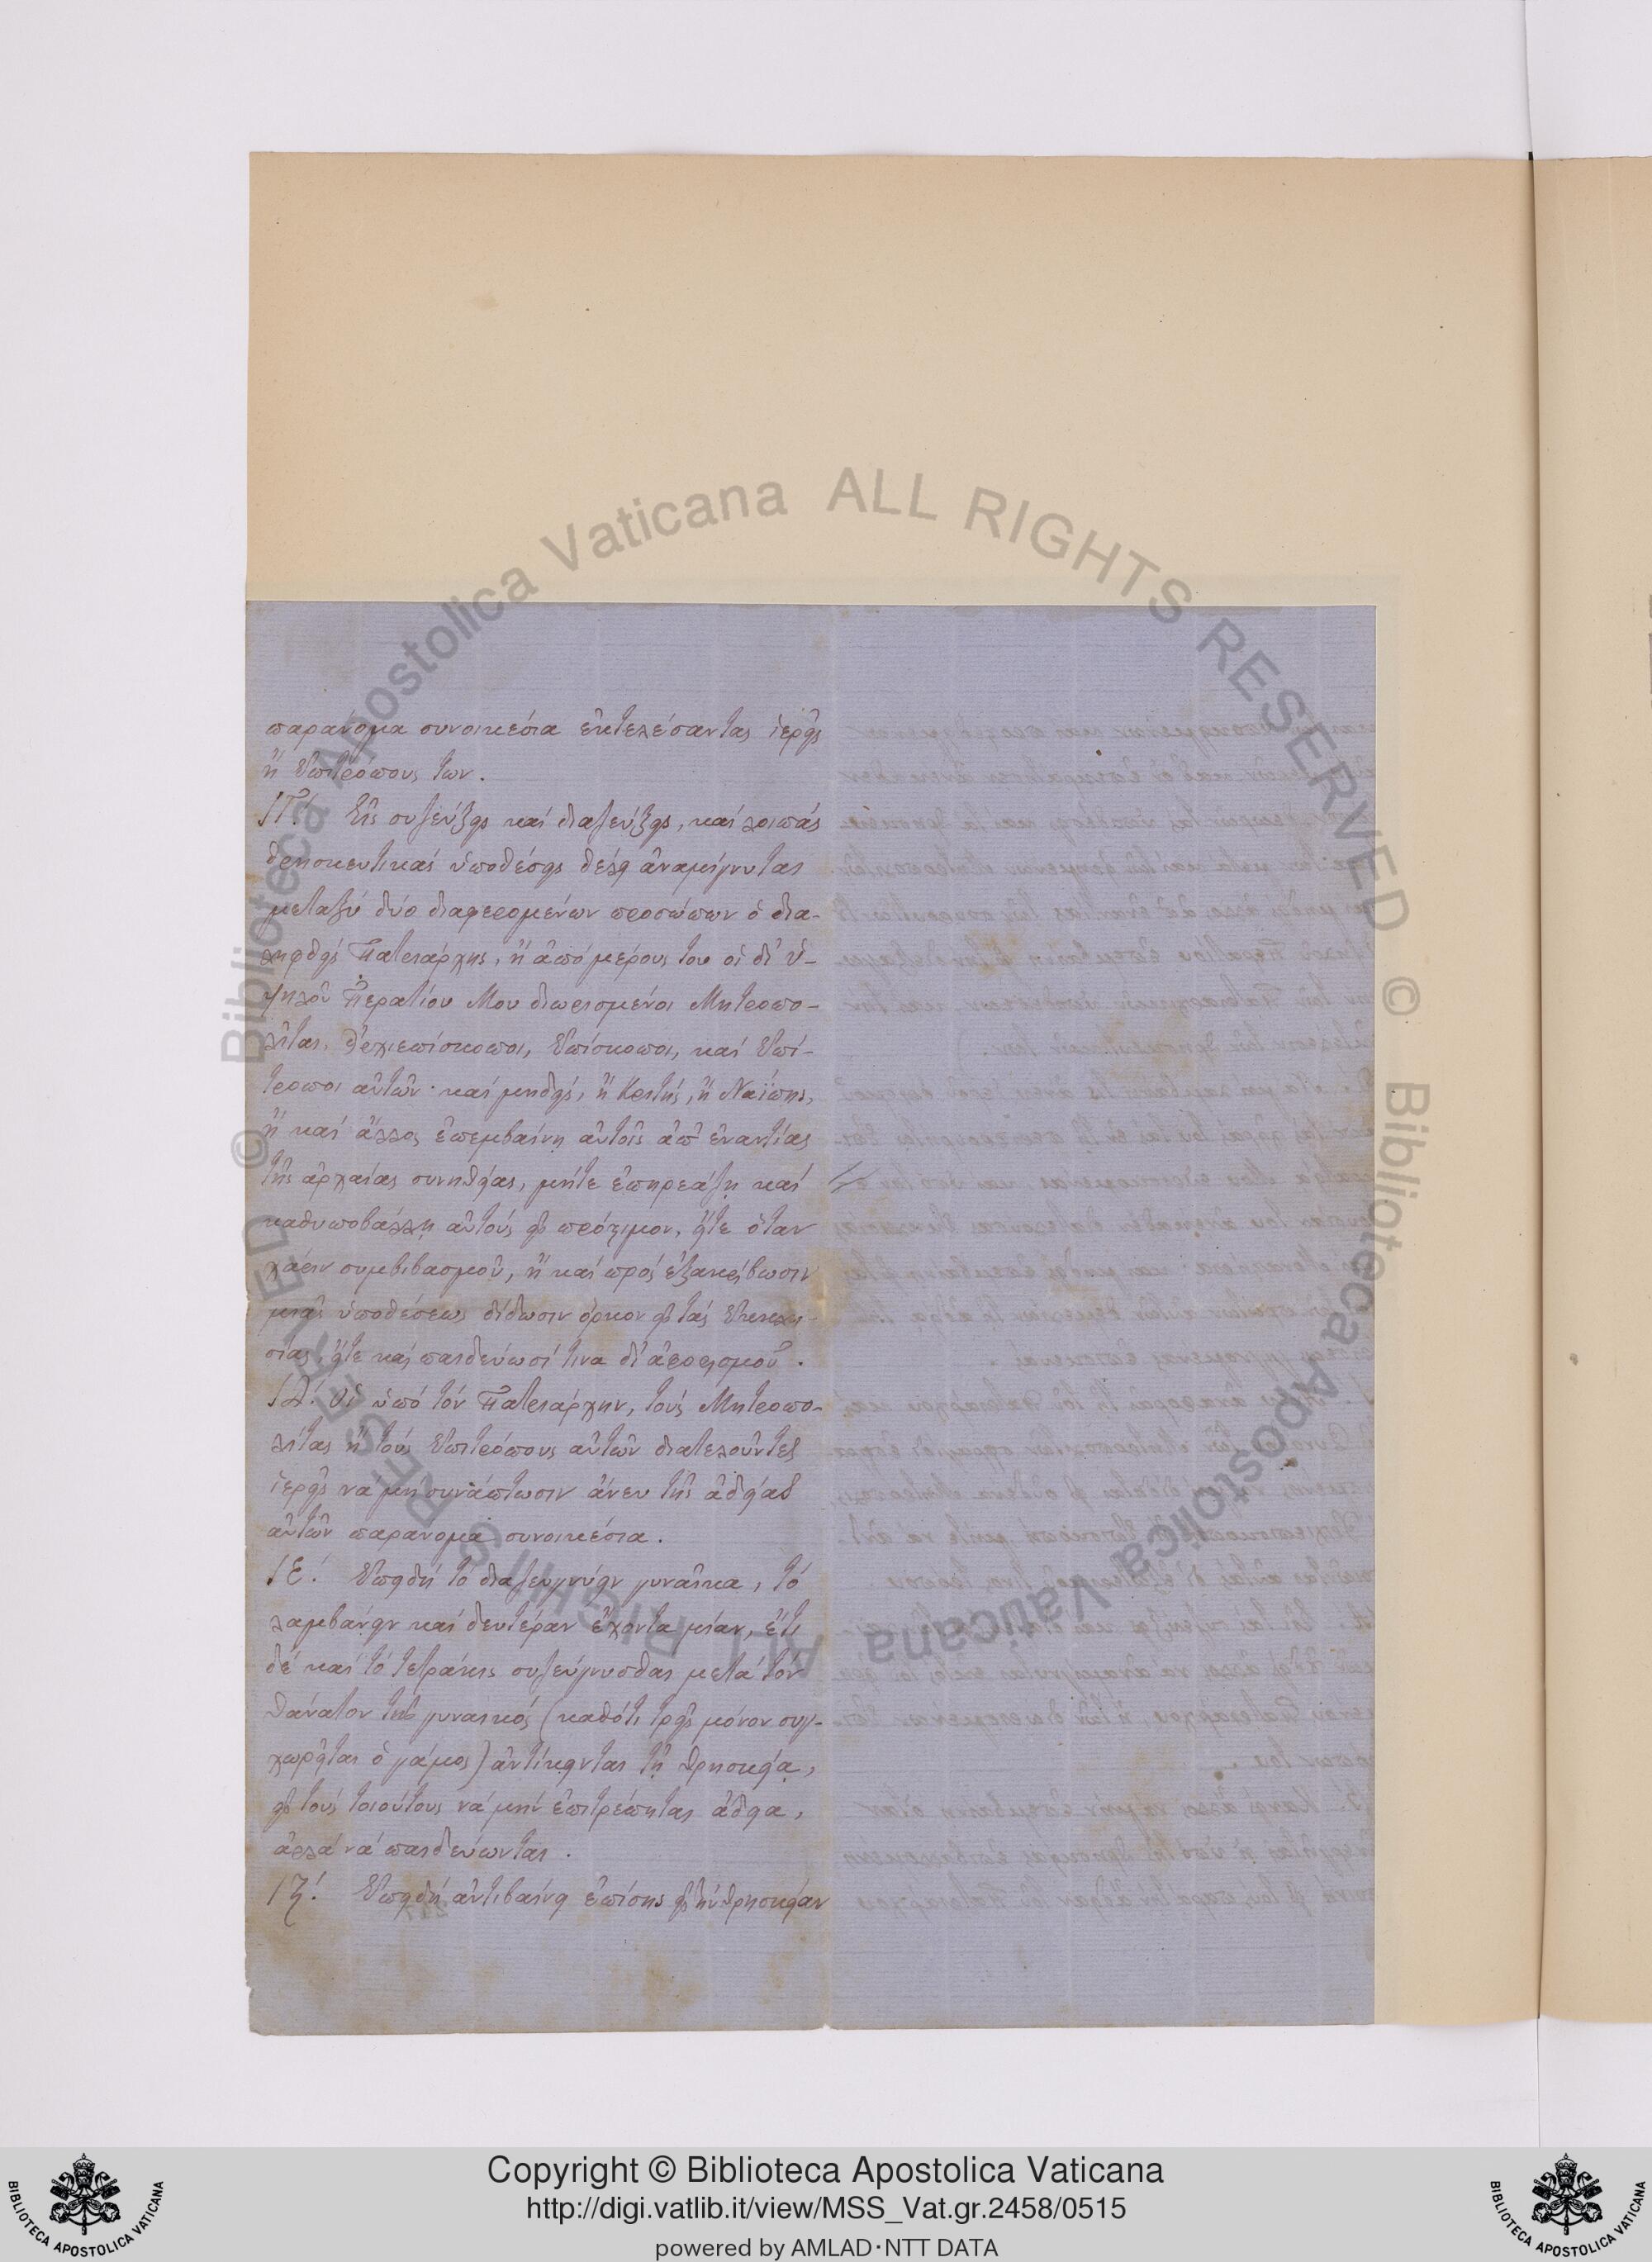 παράνομα συνοικέσια ἐκτελέσαντας ἱερεῖς
ἢ Ἐπιτρόπους των.
ΙΓʹ. Εἰς συζεύξεις καὶ διαζεύξεις, καὶ λοιπὰς
θρησκευτικὰς ὑποθέσεις θέλει ἀναμίγνυται
μεταξὺ δύο διαφερομένων προσώπων ὁ δια-
ληφθεὶς Πατριάρχης, ἢ ἀπὸ μέρους του οἱ δι' ὑ-
ψηλοῦ Βερατίου Μου διωρισμένοι Μητροπο-
λῖται, Ἀρχιεπίσκοποι, Ἐπίσκοποι, καὶ Ἐπί-
τροποι αὐτῶν· καὶ μηδεὶς, ἢ Κριτὴς, ἢ Ναΐπης,
ἢ καὶ ἄλλος ἐπεμβαίνῃ αὐτοῖς ἀπ' ἐναντίας
τῆς ἀρχαίας συνηθείας, μήτε ἐπηρεάζῃ καὶ
καθυποβάλλῃ αὐτοὺς εἰς πρόστιμον, εἴτε ὅταν
χάριν συμβιβασμοῦ, ἢ καὶ πρὸς ἐξακρίβωσιν
μιᾶς ὑποθέσεως δίδωσιν ὅρκον εἰς τὰς Ἐκκλη-
σίας, εἴτε καὶ παιδεύωσί τινα δι' ἀφορισμοῦ.
ΙΔʹ. Οἱ ὑπὸ τὸν Πατριάρχην, τοὺς Μητροπο-
λίτας ἢ τοὺς Ἐπιτρόπους αὐτῶν διατελοῦντες
ἱερεῖς νὰ μὴ συνάπτωσιν ἄνευ τῆς ἀδείας
αὐτῶν παράνομα συνοικέσια.
ΙΕʹ. Ἐπειδὴ τὸ διαζευγνύειν γυναῖκα, τὸ
λαμβάνειν καὶ δευτέραν ἔχοντα μίαν, ἔτι
δὲ καὶ τὸ τετράκις συζεύγνυσθαι μετὰ τὸν
θάνατον τῆς γυναικὸς (καθότι τρεῖς μόνον συγ-
χωρεῖται ὁ γάμος) ἀντίκεινται τῇ θρησκείᾳ,
εἰς τοὺς τοιούτους νὰ μὴν ἐπιτρέπηται ἄδεια,
ἀλλὰ νὰ παιδεύωνται.
ΙϚʹ. Ἐπειδὴ ἀντιβαίνει ἐπίσης εἰς τὴν θρησκείαν
Copyright © Biblioteca Apostolica Vaticana
http://digi.vatlib.it/view/MSS_Vat.gr.2458/0515
powered by AMLAD·NTT DATA